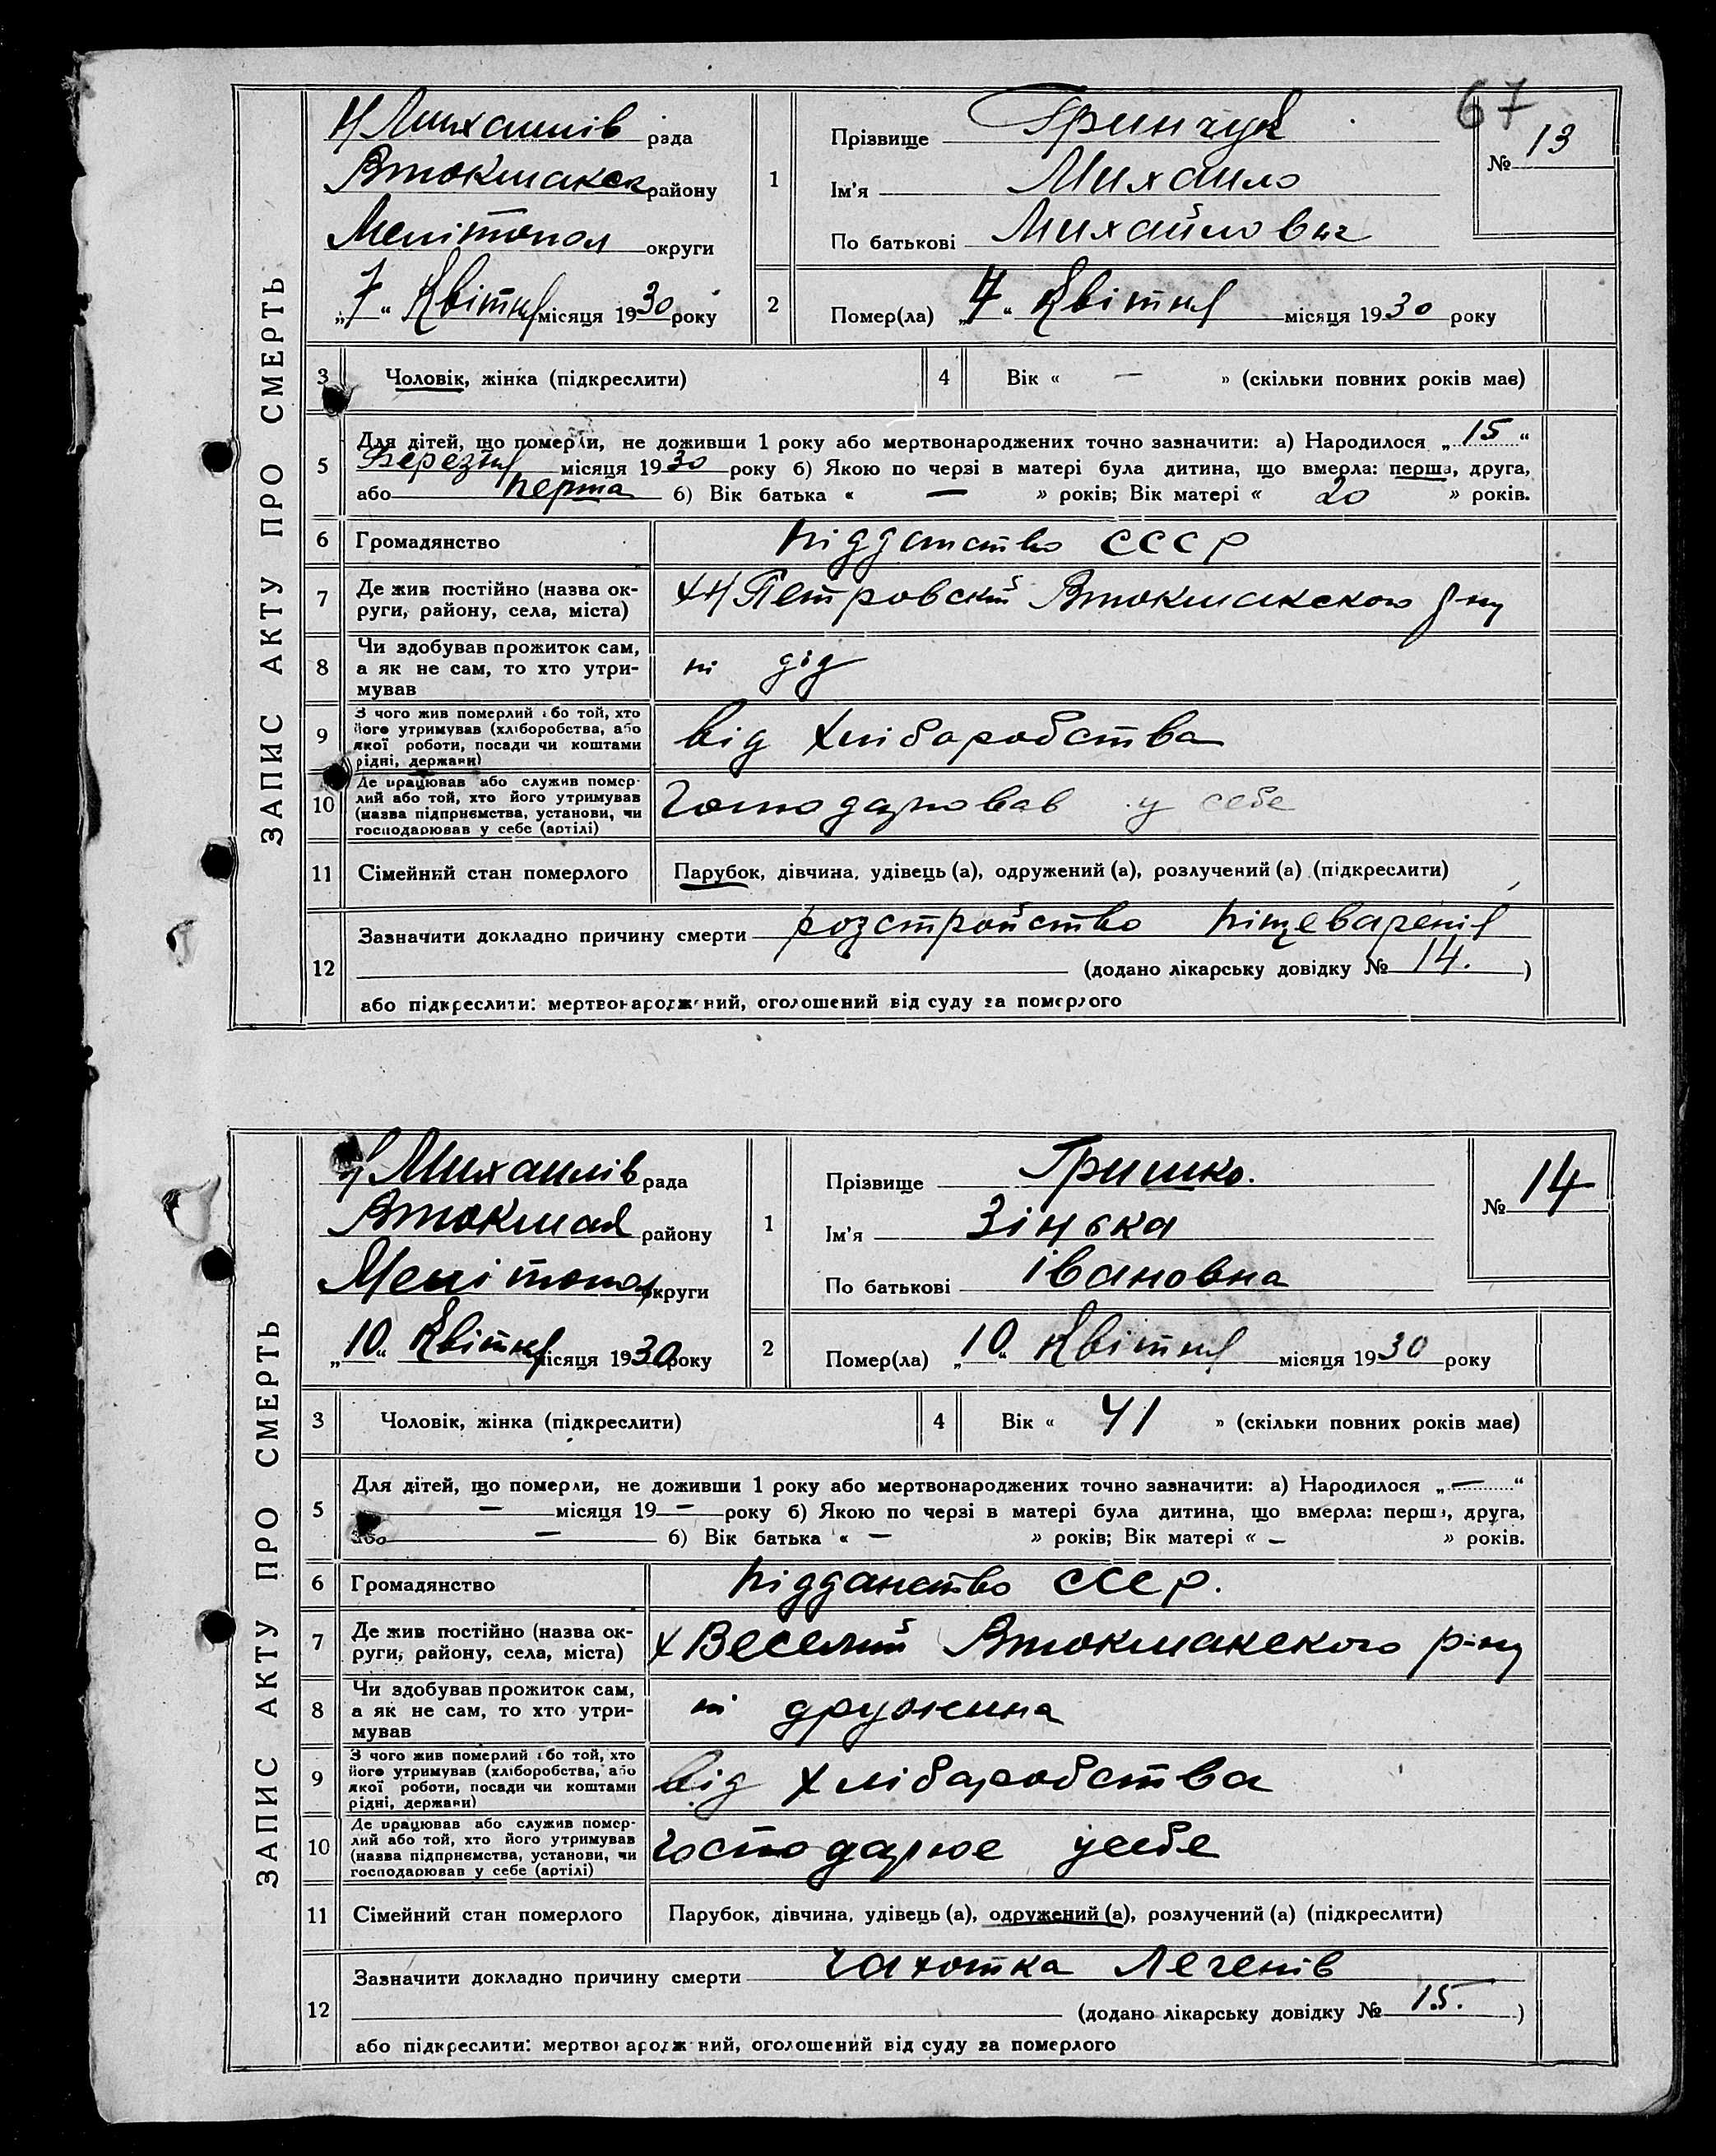 67
ЗАПИС АКТУ ПРО СМЕРТЬ
Н Михайлів рада
Втокмакск району
Мелітопол округи
„7“ Квітня місяця 1930 року
1
Прізвище Гринчук
Ім'я Михайло
По батькові Михайлович
№ 13
2
Помер(ла) „7“ Квітня місяця 1930 року
3 Чоловік, жінка (підкреслити)
4 Вік « — » (скільки повних років має)
5 Для дітей, що померли, не доживши 1 року або мертвонароджених точно зазначити: а) Народилося „15“
Березня місяця 1930 року б) Якою по черзі в матері була дитина, що вмерла: перша, друга,
або перша б) Вік батька « — » років; Вік матері « 20 » років.
6 Громадянство підданство СССР
7 Де жив постійно (назва ок-
руги, району, села, міста) хН Петровский Втокмакского р-ну
8 Чи здобував прожиток сам,
а як не сам, то хто утри-
мував
ні дід
9 З чого жив померлий або той, хто
його утримував (хліборобства, або
якої роботи, посади чи коштами
рідні, держави)
від хліборобства
10 Де працював або служив помер-
лий або той, хто його утримував
(назва підприємства, установи, чи
господарював у себе (артілі)
господаровав у себе
11 Сімейний стан померлого Парубок, дівчина, удівець (а), одружений (а), розлучений (а) (підкреслити)
12 Зазначити докладно причину смерти розстройство піщеваренія
(додано лікарську довідку № 14. )
або підкреслити: мертвонароджений, оголошений від суду за померлого
ЗАПИС АКТУ ПРО СМЕРТЬ
Н Михайлів рада
Втокмак району
Мелітопол округи
„10“ Квітня місяця 1930 року
1
Прізвище Гришко.
Ім'я Зінька
По батькові Івановна
№ 14
2
Помер(ла) „10“ Квітня місяця 1930 року
3 Чоловік, жінка (підкреслити)
4 Вік « 41 » (скільки повних років має)
5 Для дітей, що померли, не доживши 1 року або мертвонароджених точно зазначити: а) Народилося „—“
— місяця 19 — року б) Якою по черзі в матері була дитина, що вмерла: перша, друга,
або — б) Вік батька « — » років; Вік матері « — » років.
6 Громадянство підданство СССР.
7 Де жив постійно (назва ок-
руги, району, села, міста) х Веселый Втокмакского р-ну
8 Чи здобував прожиток сам,
а як не сам, то хто утри-
мував
ні дружина
9 З чого жив померлий або той, хто
його утримував (хліборобства, або
якої роботи, посади чи коштами
рідні, держави)
від хліборобства
10 Де працював або служив помер-
лий або той, хто його утримував
(назва підприємства, установи, чи
господарював у себе (артілі)
господарює у себе
11 Сімейний стан померлого Парубок, дівчина, удівець (а), одружений (а), розлучений (а) (підкреслити)
12 Зазначити докладно причину смерти чахотка Легенів
(додано лікарську довідку № 15. )
або підкреслити: мертвонароджений, оголошений від суду за померлого